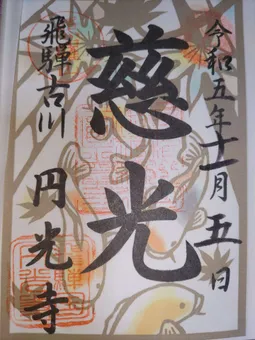 令和五年十一月五日
慈光
飛騨古川
円光寺